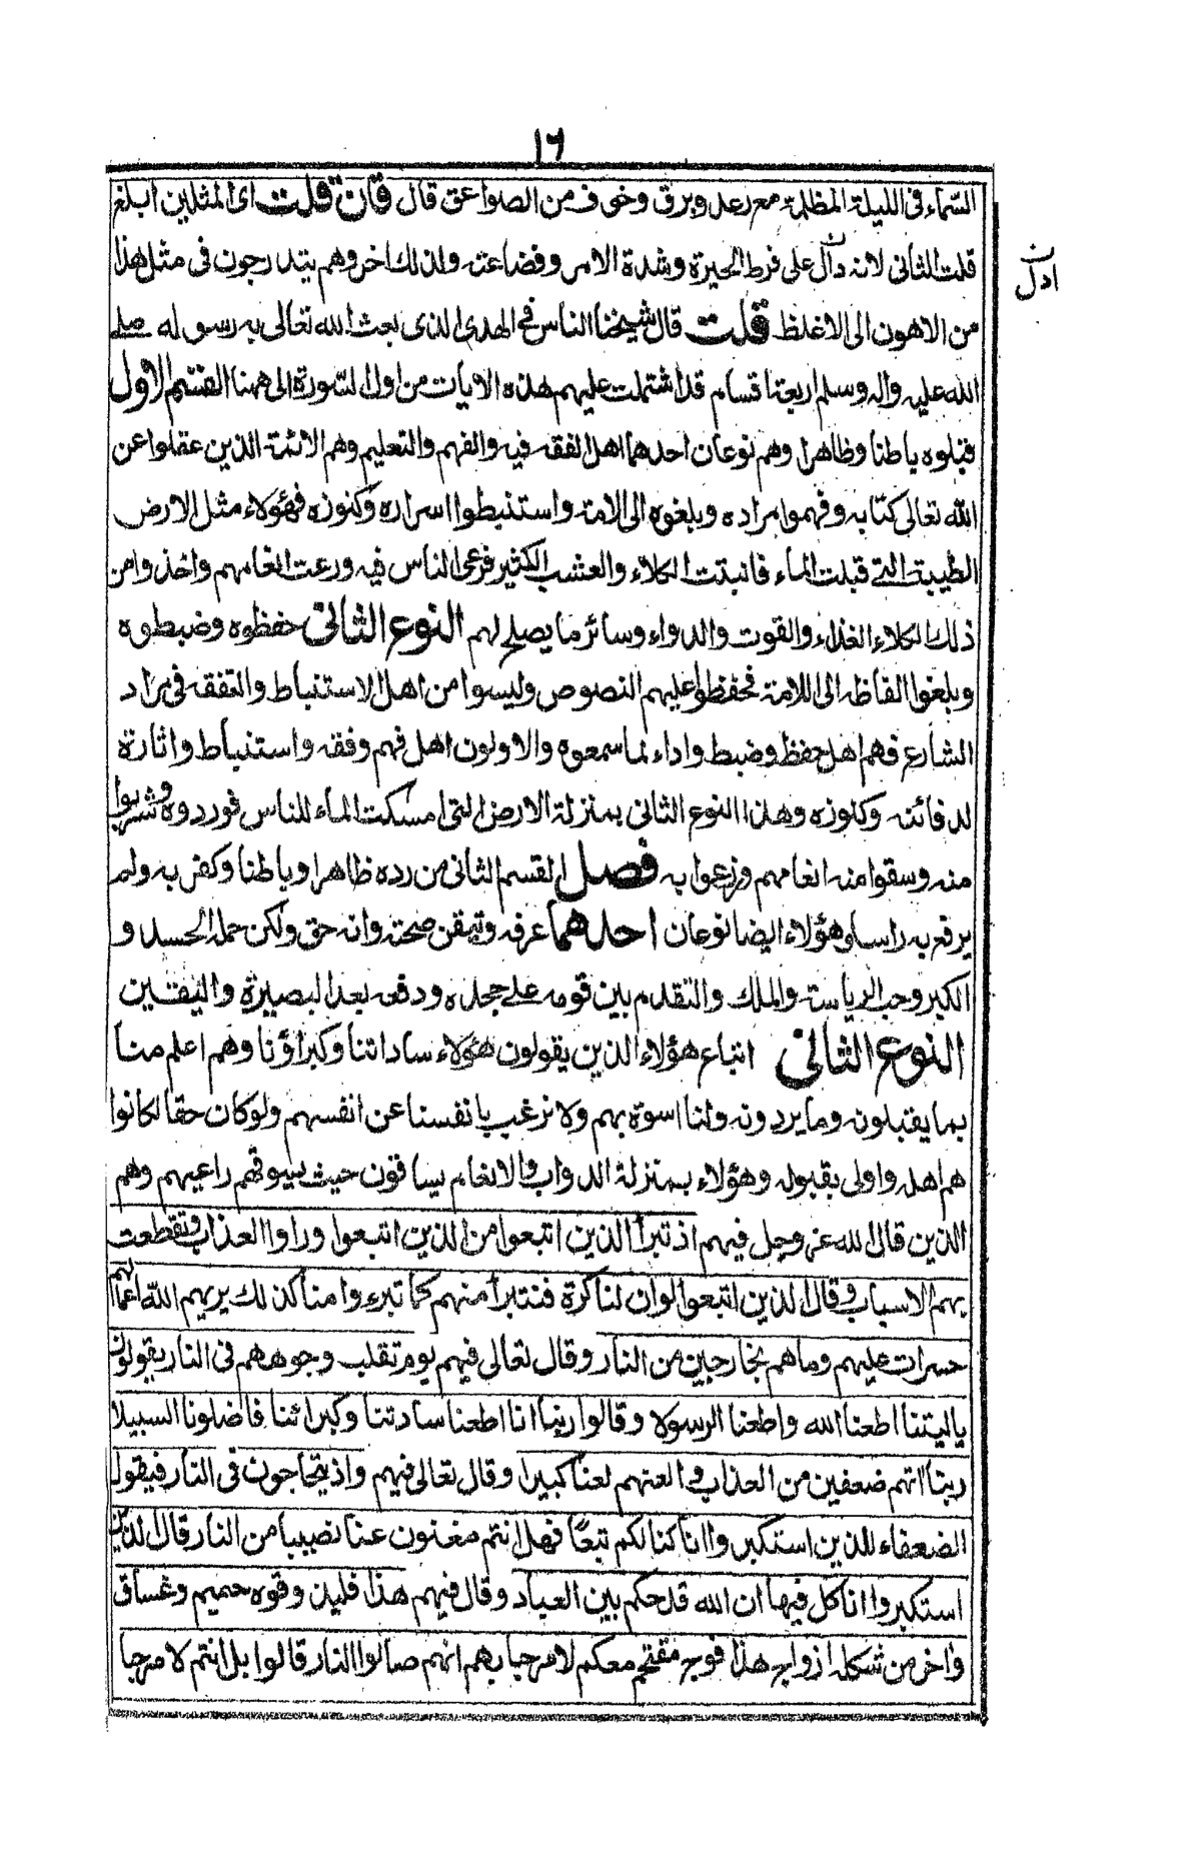 ١٦
السماء فى الليلة المظلمة مع رعد وبرق وخوف من الصواعق قال فان قلت اى المثلين ابلغ
قلت الثانى لانه دال على فرط الحيرة وشدة الامر وفضاعته ولذلك اخر وهم يتدرجون فى مثل هذا
ادل
من الاهون الى الاغلظ قلت قال شيخنا الناس فى الهدى الذى بعث الله تعالى به رسوله صلى
الله عليه واله وسلم اربعة اقسام قد اشتملت عليهم هذه الايات من اول السورة الى ههنا القسم الاول
قبلوه باطنا وظاهرا وهم نوعان احدهما اهل الفقه فيه والفهم والتعليم وهم الائمة الذين عقلوا عن
الله تعالى كتابه وفهموا مراده وبلغوه الى الامة واستنبطوا اسراره وكنوزه فهؤلاء مثل الارض
الطيبة التى قبلت الماء فانبتت الكلاء والعشب الكثير فرعى الناس فيه ورعت انعامهم واخذوا من
ذلك الكلاء الغذاء والقوت والدواء وسائر ما يصلح لهم النوع الثانى حفظوه وضبطوه
وبلغوا الفاظه الى اللامة فحفظوا عليهم النصوص وليسوا من اهل الاستنباط والتفقه فى مراد
الشارع فهم اهل حفظ وضبط واداء لما سمعوه والاولون اهل فهم وفقه واستنباط واثارة
لدفائنه وكنوزه وهذا النوع الثانى بمنزلة الارض التى امسكت الماء للناس فوردوه وشربوا
منه وسقوا منه انعامهم وزرعوا به فصل القسم الثانى من رده ظاهرا وباطنا وكفر به ولم
يرفع به راسا وهؤلاء ايضا نوعان احدهما عرفه وتيقن صحته وانه حق ولكن حمله الحسد و
الكبر وحب الرياسة والملك والتقدم بين قومه على جحده ودفعه بعد البصيرة واليقين
النوع الثانى اتباع هؤلاء الذين يقولون هؤلاء ساداتنا وكبراؤنا وهم اعلم منا
بما يقبلونه وما يردونه ولنا اسوة بهم ولا نرغب بانفسنا عن انفسهم ولو كان حقا لكانوا
هم اهله واولى بقبوله وهؤلاء بمنزلة الدواب والانعام يساقون حيث يسوقهم راعيهم وهم
الذين قال الله عز وجل فيهم اذ تبرأ الذين اتبعوا من الذين اتبعوا وراوا العذاب وتقطعت
بهم الاسباب وقال الذين اتبعوا لو ان لنا كرة فنتبرأ منهم كما تبرءوا منا كذلك يريهم الله اعمالهم
حسرات عليهم وما هم بخارجين من النار وقال تعالى فيهم يوم تقلب وجوههم فى النار يقولون
ياليتنا اطعنا الله واطعنا الرسولا وقالوا ربنا انا اطعنا سادتنا وكبرائنا فاضلونا السبيلا
ربنا اتهم ضعفين من العذاب والعنهم لعنا كبيرا وقال تعالى فيهم واذ يتحاجون فى النار فيقول
الضعفاء للذين استكبروا انا كنا لكم تبعا فهل انتم مغنون عنا نصيبا من النار قال الذين
استكبروا انا كل فيها ان الله قد حكم بين العباد وقال فيهم هذا فليذوقوه حميم وغساق
واخر من شكله ازواج هذا فوج مقتحم معكم لا مرحبا بهم انهم صالوا النار قالوا بل انتم لا مرحبا